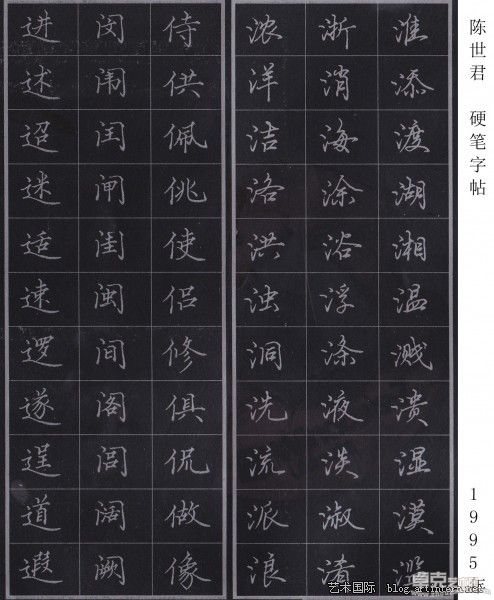 进述迢迷适速逻遂逞道遐
闵闹闰闸闺闽间阁闾阔阙
侍供佩佻使侣修俱侃做像
浓洋洁洛洪浊洞洗流派浪
浙消海涂浴浮涤液淡淑渚
淮添渡湖湘温溅溃湿漠
陈世君 硬笔字帖 1995
艺术国际 blog.artintern.net